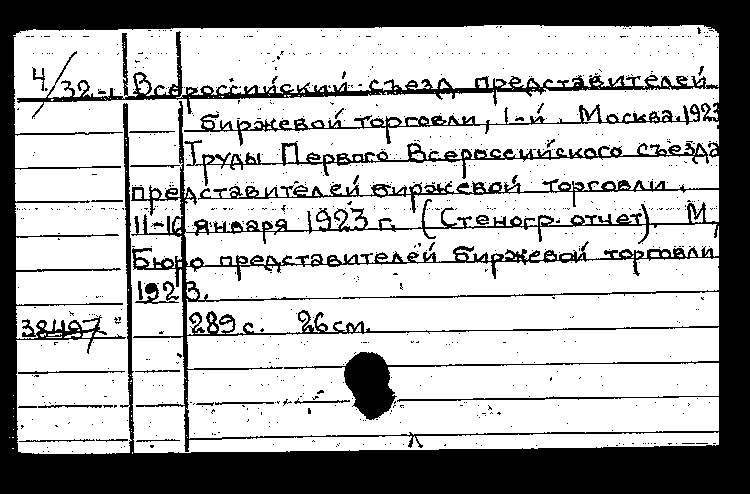 4/32-1 Всероссийский съезд представителей
биржевой торговли, 1-й. Москва. 1923
Труды Первого Всероссийского съезда
представителей биржевой торговли.
11-16 января 1923 г. (Стеногр. отчет). М.,
Бюро представителей биржевой торговли
1923.
38497 289 с. 26 см.